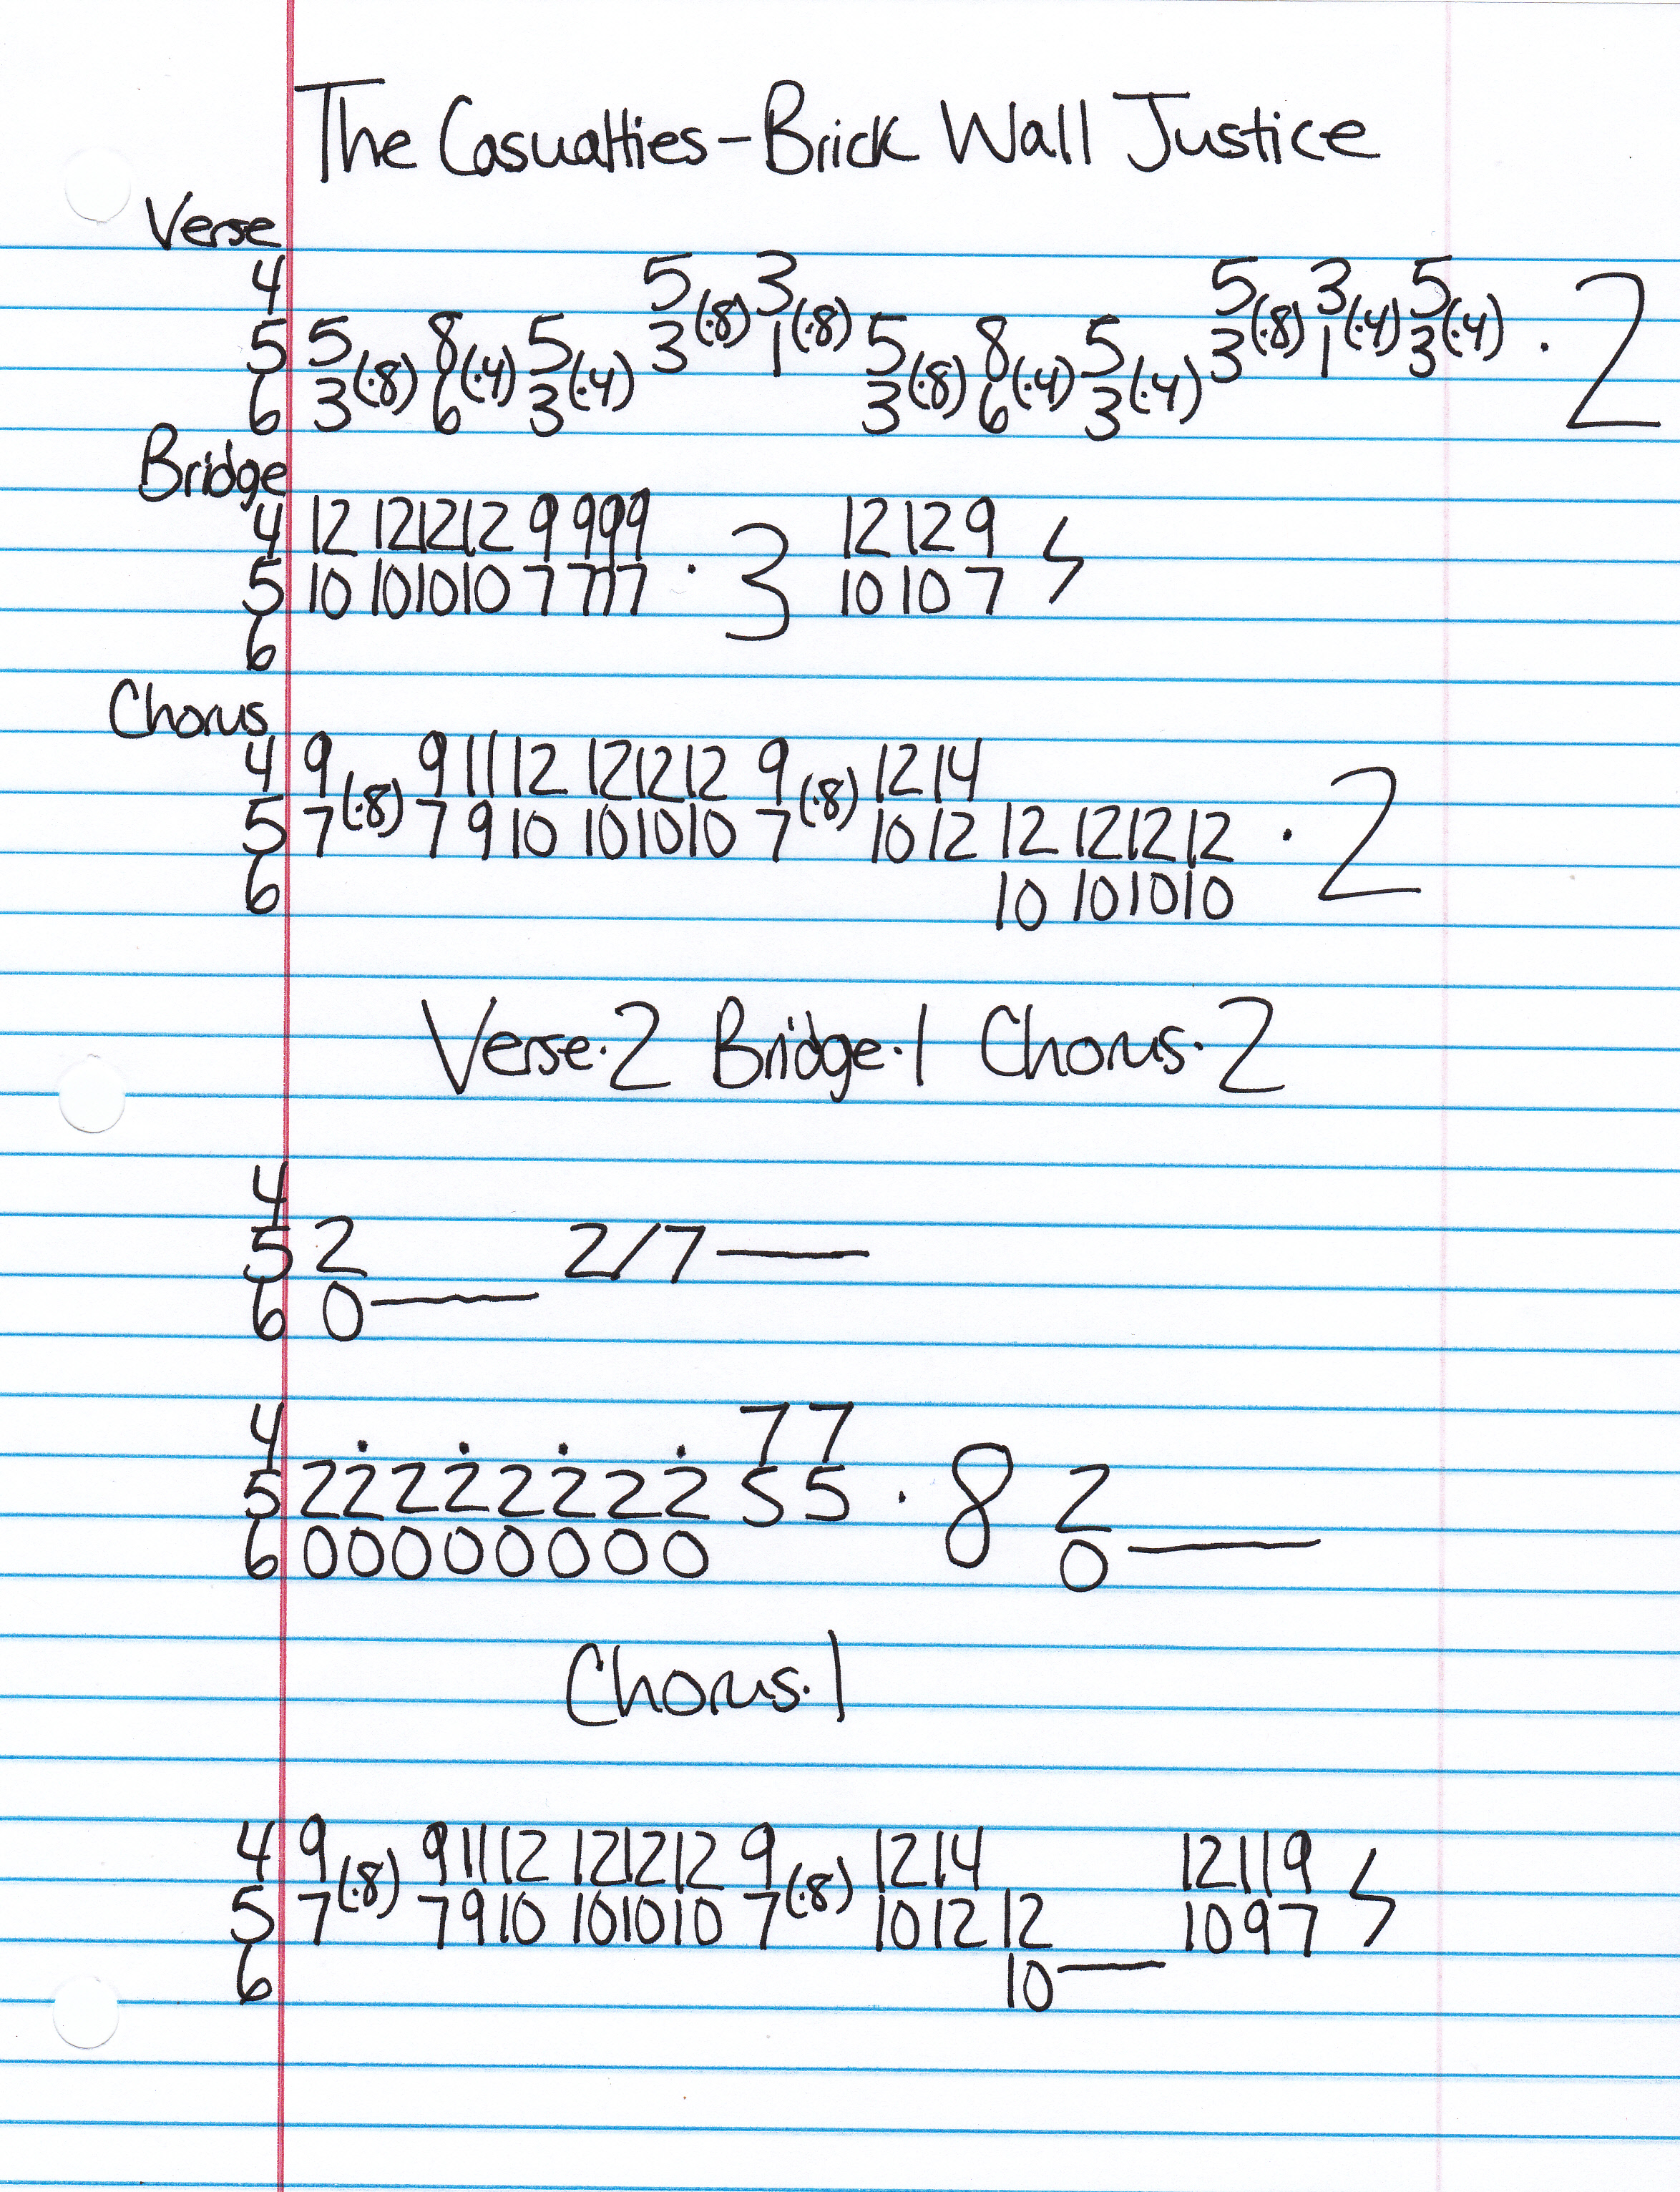 The Casualties-Brick Wall Justice
Verse
4 5 3
5 5(·8) 8(·4) 5(·4) 3(·8) 1(·8) 5(·8) 8(·4) 5(·4) 5 3(·8) 3 1(·4) 5 3(·4) · 2
6 3 6 3 3 6 3
Bridge
4 12 121212 9 999 12 12 9
5 10 101010 7 777 · 3 10 10 7 ϟ
6
Chorus
4 9 9 11 12 121212 9 12 14
5 7(·8) 7 9 10 101010 7(·8) 10 12 12 121212 · 2
6 10 101010
Verse·2 Bridge·1 Chorus·2
4
5 2 2/7——
6 0——
4 7 7
5 2 2̇ 2 2̇ 2 2̇ 2 2̇ 5 5 · 8 2
6 0 0 0 0 0 0 0 0 0——
Chorus·1
4 9 9 11 12 121212 9 12 14 12 11 9
5 7(·8) 7 9 10 101010 7(·8) 10 12 12 10 9 7 ϟ
6 10——